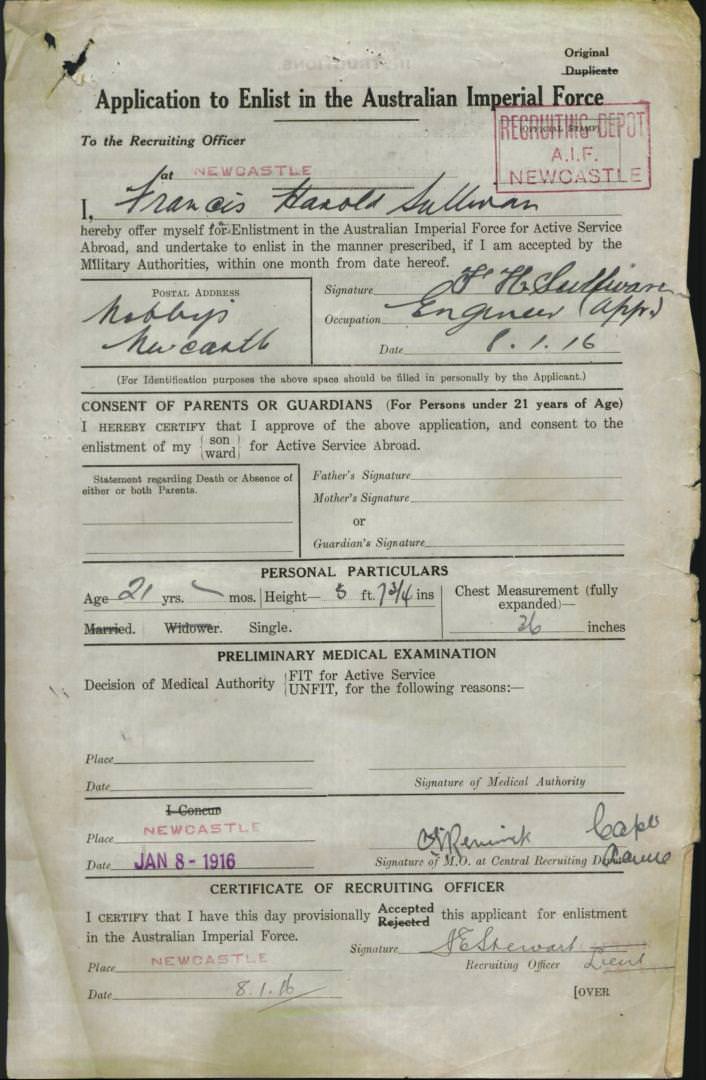 Original
Duplicate
Application to Enlist in the Australian Imperial Force
To the Recruiting Officer
(OFFICIAL STAMP)
RECRUITING DEPOT
A.I.F.
NEWCASTLE
at NEWCASTLE
I, Francis Harold Sullivan
hereby offer myself for Enlistment in the Australian Imperial Force for Active Service
Abroad, and undertake to enlist in the manner prescribed, if I am accepted by the
Military Authorities, within one month from date hereof.
POSTAL ADDRESS
Nobbys
Newcastle
Signature F H Sullivan
Occupation Engineer (App.)
Date 8.1.16
(For Identification purposes the above space should be filled in personally by the Applicant.)
CONSENT OF PARENTS OR GUARDIANS (For Persons under 21 years of Age)
I HEREBY CERTIFY that I approve of the above application, and consent to the
enlistment of my { son ward } for Active Service Abroad.
Statement regarding Death or Absence of
either or both Parents.
Father's Signature
Mother's Signature
or
Guardian's Signature
PERSONAL PARTICULARS
Age 21 yrs. mos. Height— 5 ft. 7 3/4 ins
Chest Measurement (fully
expanded)—
36 inches
Married. Widower. Single.
PRELIMINARY MEDICAL EXAMINATION
Decision of Medical Authority { FIT for Active Service
UNFIT, for the following reasons:—
Place
Date
Signature of Medical Authority
I Concur
Place NEWCASTLE
Date JAN 8 - 1916
Renwick Capt
Signature of M.O. at Central Recruiting
CERTIFICATE OF RECRUITING OFFICER
I CERTIFY that I have this day provisionally Accepted Rejected this applicant for enlistment
in the Australian Imperial Force.
Signature Stewart
Recruiting Officer Lieut
Place NEWCASTLE
Date 8.1.16
[OVER